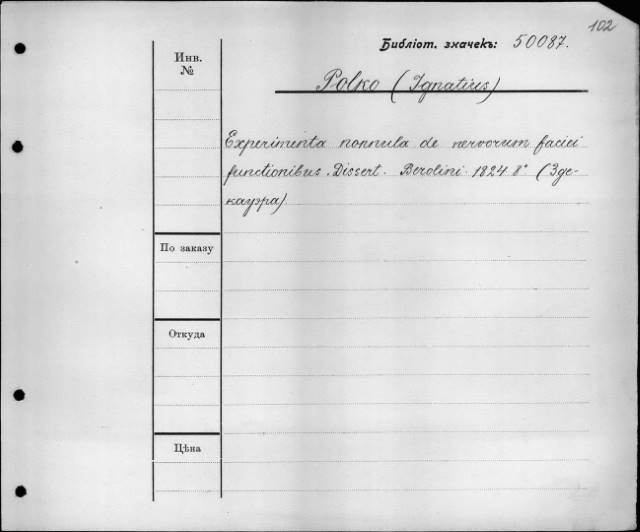 102
Библіот. значекъ: 50087.
Инв.
№
Polko (Ignatius)
Experimenta nonnula de nervorum faciei
functionibus. Dissert. Berolini. 1824. 8° (Зде-
кауэра)
По заказу
Откуда
Цѣна